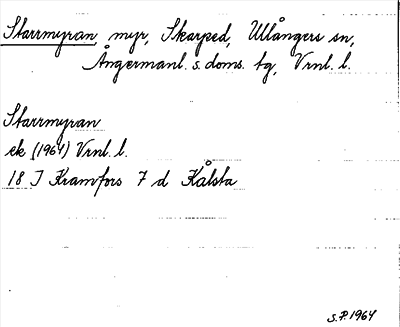 Starrmyran, myr, Skarped, Ullångers sn,
Ångermanl. s. doms. tg, Vrnl. l.
Starrmyran
ek (1964) Vrnl. l.
18 I Kramfors 7 d Kålsta
S.P. 1964